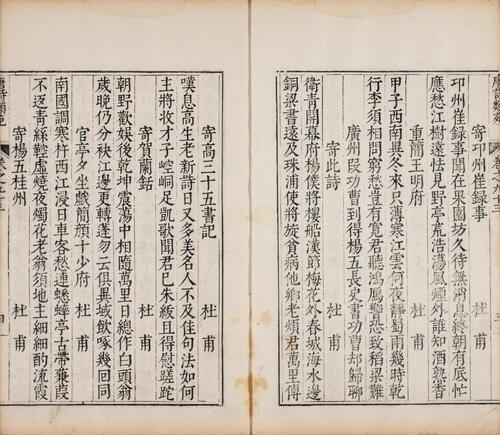 寄卭州崔録事 杜甫
卭州崔録事聞在果園坊久待無消息終朝有底忙
應愁江樹遠怯見野亭荒浩蕩風煙外誰知酒熟香
重簡王明府 杜甫
甲子西南異冬来只薄寒江雲何夜静蜀雨幾時乾
行李須相問窮愁豈有寬君聽鴻鴈響恐致稻粱難
廣州叚功曹到得楊五長史書功曹却歸聊
寄此詩 杜甫
衛青開幕府楊僕將樓船漢節梅花外春城海水邊
銅梁書遠及珠浦使將旋貧病他鄉老煩君萬里傳
寄高三十五書記 杜甫
嘆息高生老新詩日又多美名人不及佳句法如何
主將收才子崆峒足凱歌聞君已朱紱且得慰蹉跎
寄賀蘭銛 杜甫
朝野歡娱後乾坤震蕩中相隨萬里日總作白頭翁
歲晚仍分袂江邊更轉蓬勿云俱異域飲啄幾回同
官亭夕坐戲簡顔十少府 杜甫
南國調寒杵西江浸日車客愁連蟋蟀亭古帶蒹葭
不返青絲鞚虚燒夜燭花老翁須地主細細酌流霞
寄楊五桂州 杜甫